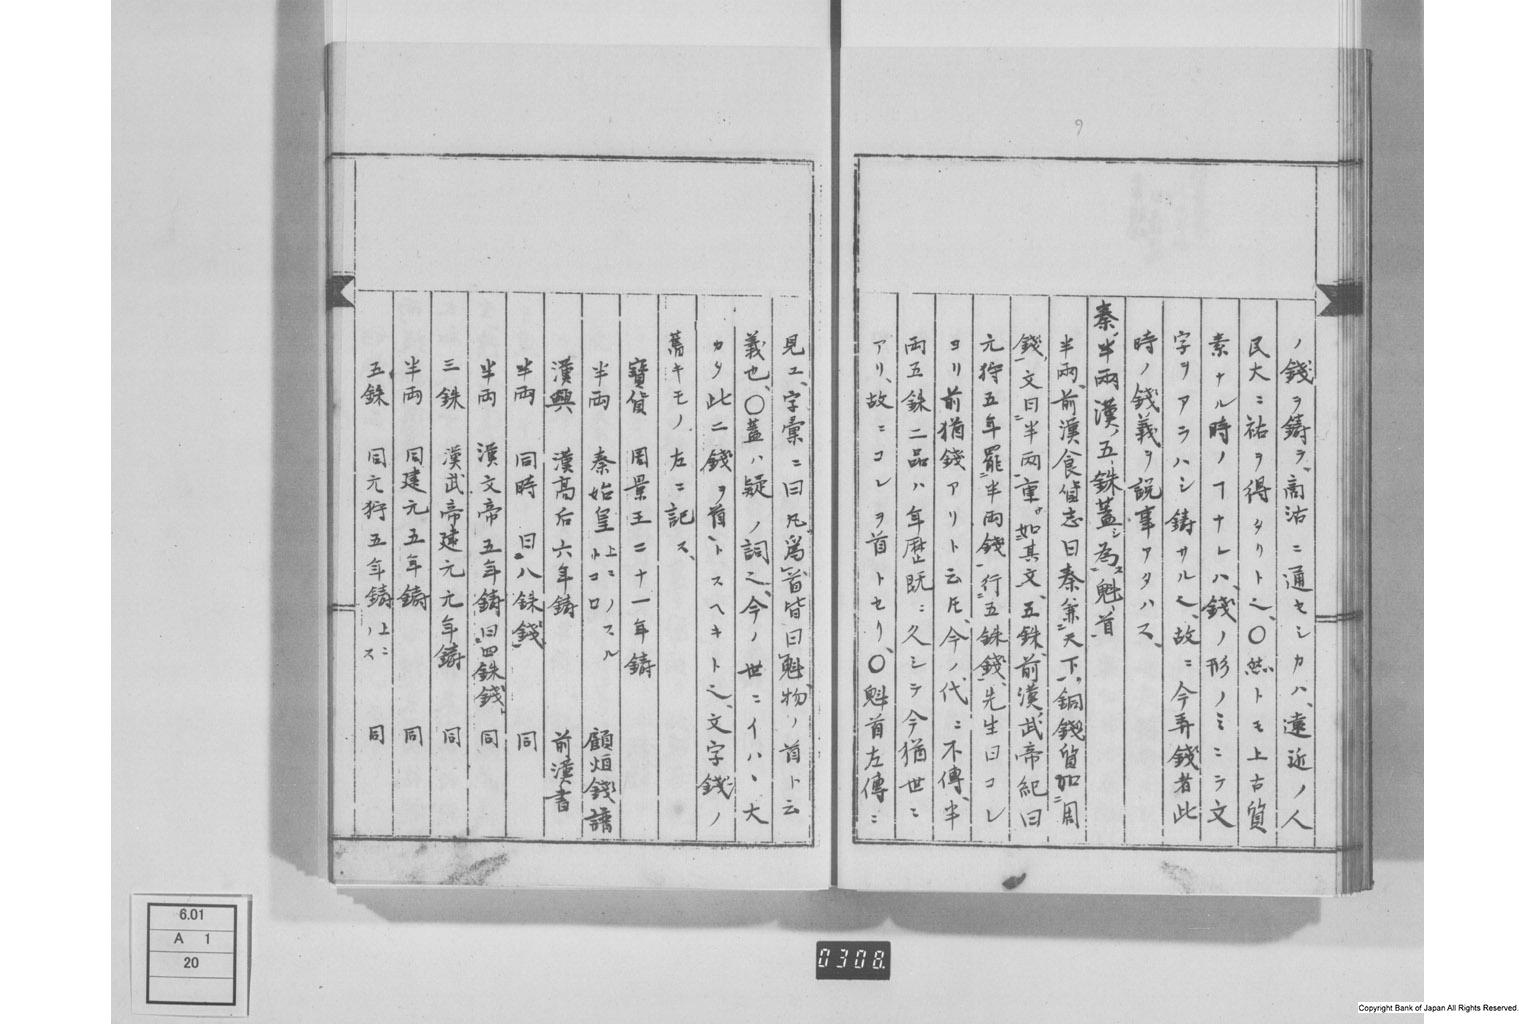 ノ錢ヲ鋳ラ、商沽ニ通セシカハ、遠近ノ人
民大ニ祐ヲ得タリト之、〇然トモ上古質
素ナル時ノヿナレハ、錢ノ形ノミニテ文
字ヲアラハシ鋳サル也、故ニ今弄錢者此
時ノ錢義ヲ説事ヲタハス、
秦半兩漢ノ五銖蓋シ為ス魁首
半兩、前漢食貨志曰秦兼ニ天下ヲ銅錢質如ニ周
錢ノ文曰ニ半兩ト重ヲ如其文、五銖、前漢武帝紀曰
元狩五年罷ニ半両錢ヲ行ニ五銖錢ヲ先生曰コレ
ヨリ前猶錢アリト云𪜈、今ノ代ニ不傳、半
両五銖二品ハ年歴既ニ久シテ今猶世ニ
アリ、故ニコレヲ首トセリ、〇魁首左傳ニ
見エ、字彙ニ曰凡爲首皆曰魁、物ノ首ト云
義也、〇蓋ハ疑ノ詞之、今ノ世ニイハヽ大
カタ此二錢ヲ首トスヘキト之、文字錢ノ
舊キモノ左ニ記ス、
寶貨 周景王二十一年鋳
半両 秦始皇 上ニノスルトコロ 顧烜錢譜
漢興 漢高后六年鋳 前漢書
半両 同時 曰八銖錢 同
半両 漢文帝五年鋳曰四銖錢 同
三銖 漢武帝建元元年鋳 同
半両 同建元五年鋳 同
五銖 同元狩五年鋳 上ニノス 同
6.01
A 1
20
0308.
Copyright Bank of Japan All Rights Reserved.